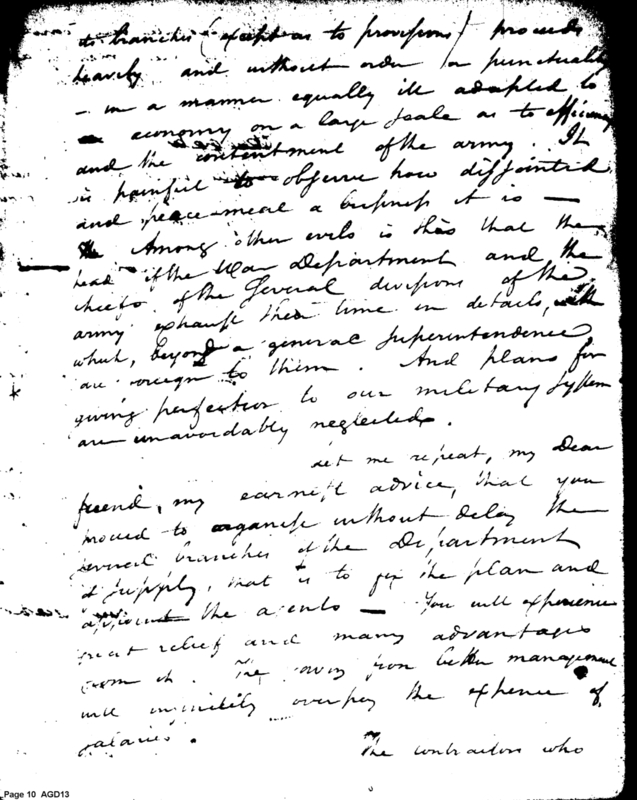 its branches (except as to provisions) proceeds
heavily and without order or punctuality
— in a manner equally ill adapted to
economy on a large scale as to efficiency
and the contentment of the army. It
is painful to observe how disjointed
and peace-meal a business it is —
Among other evils is this that the
head of the War Department and the
chiefs of the several divisions of the
army exhaust their time in details, with
which, beyond a general superintendence,
are foreign to them. And plans for
giving perfection to our military system
are unavoidably neglected.
Let me repeat, my Dear
friend, my earnest advice, that you
proceed to organise without delay the
several branches of the Department
of supply, that is to fix the plan and
appoint the agents — You will experience
great relief and many advantages
from it. The saving from better management
will infinitely overpay the expence of
salaries.
The contractors who
Page 10 AGD13